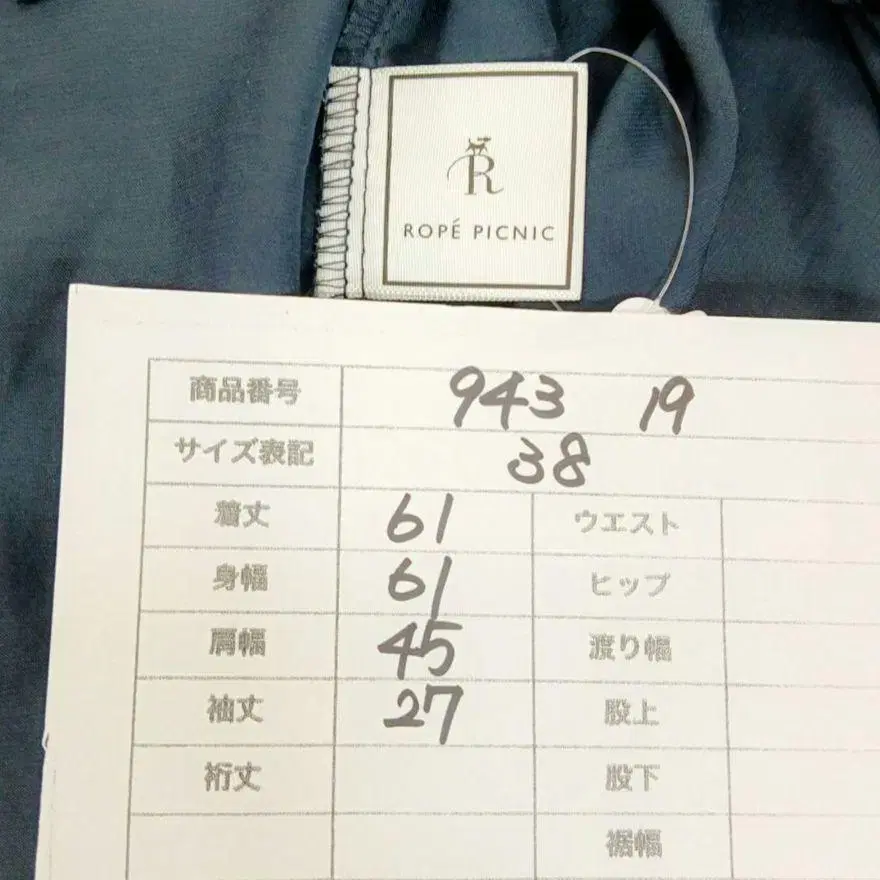 R
ROPÉ PICNIC
商品番号 943 19
サイズ表記 38
着丈 61 ウエスト
身幅 61 ヒップ
肩幅 45 渡り幅
袖丈 27 股上
裄丈 股下
裾幅